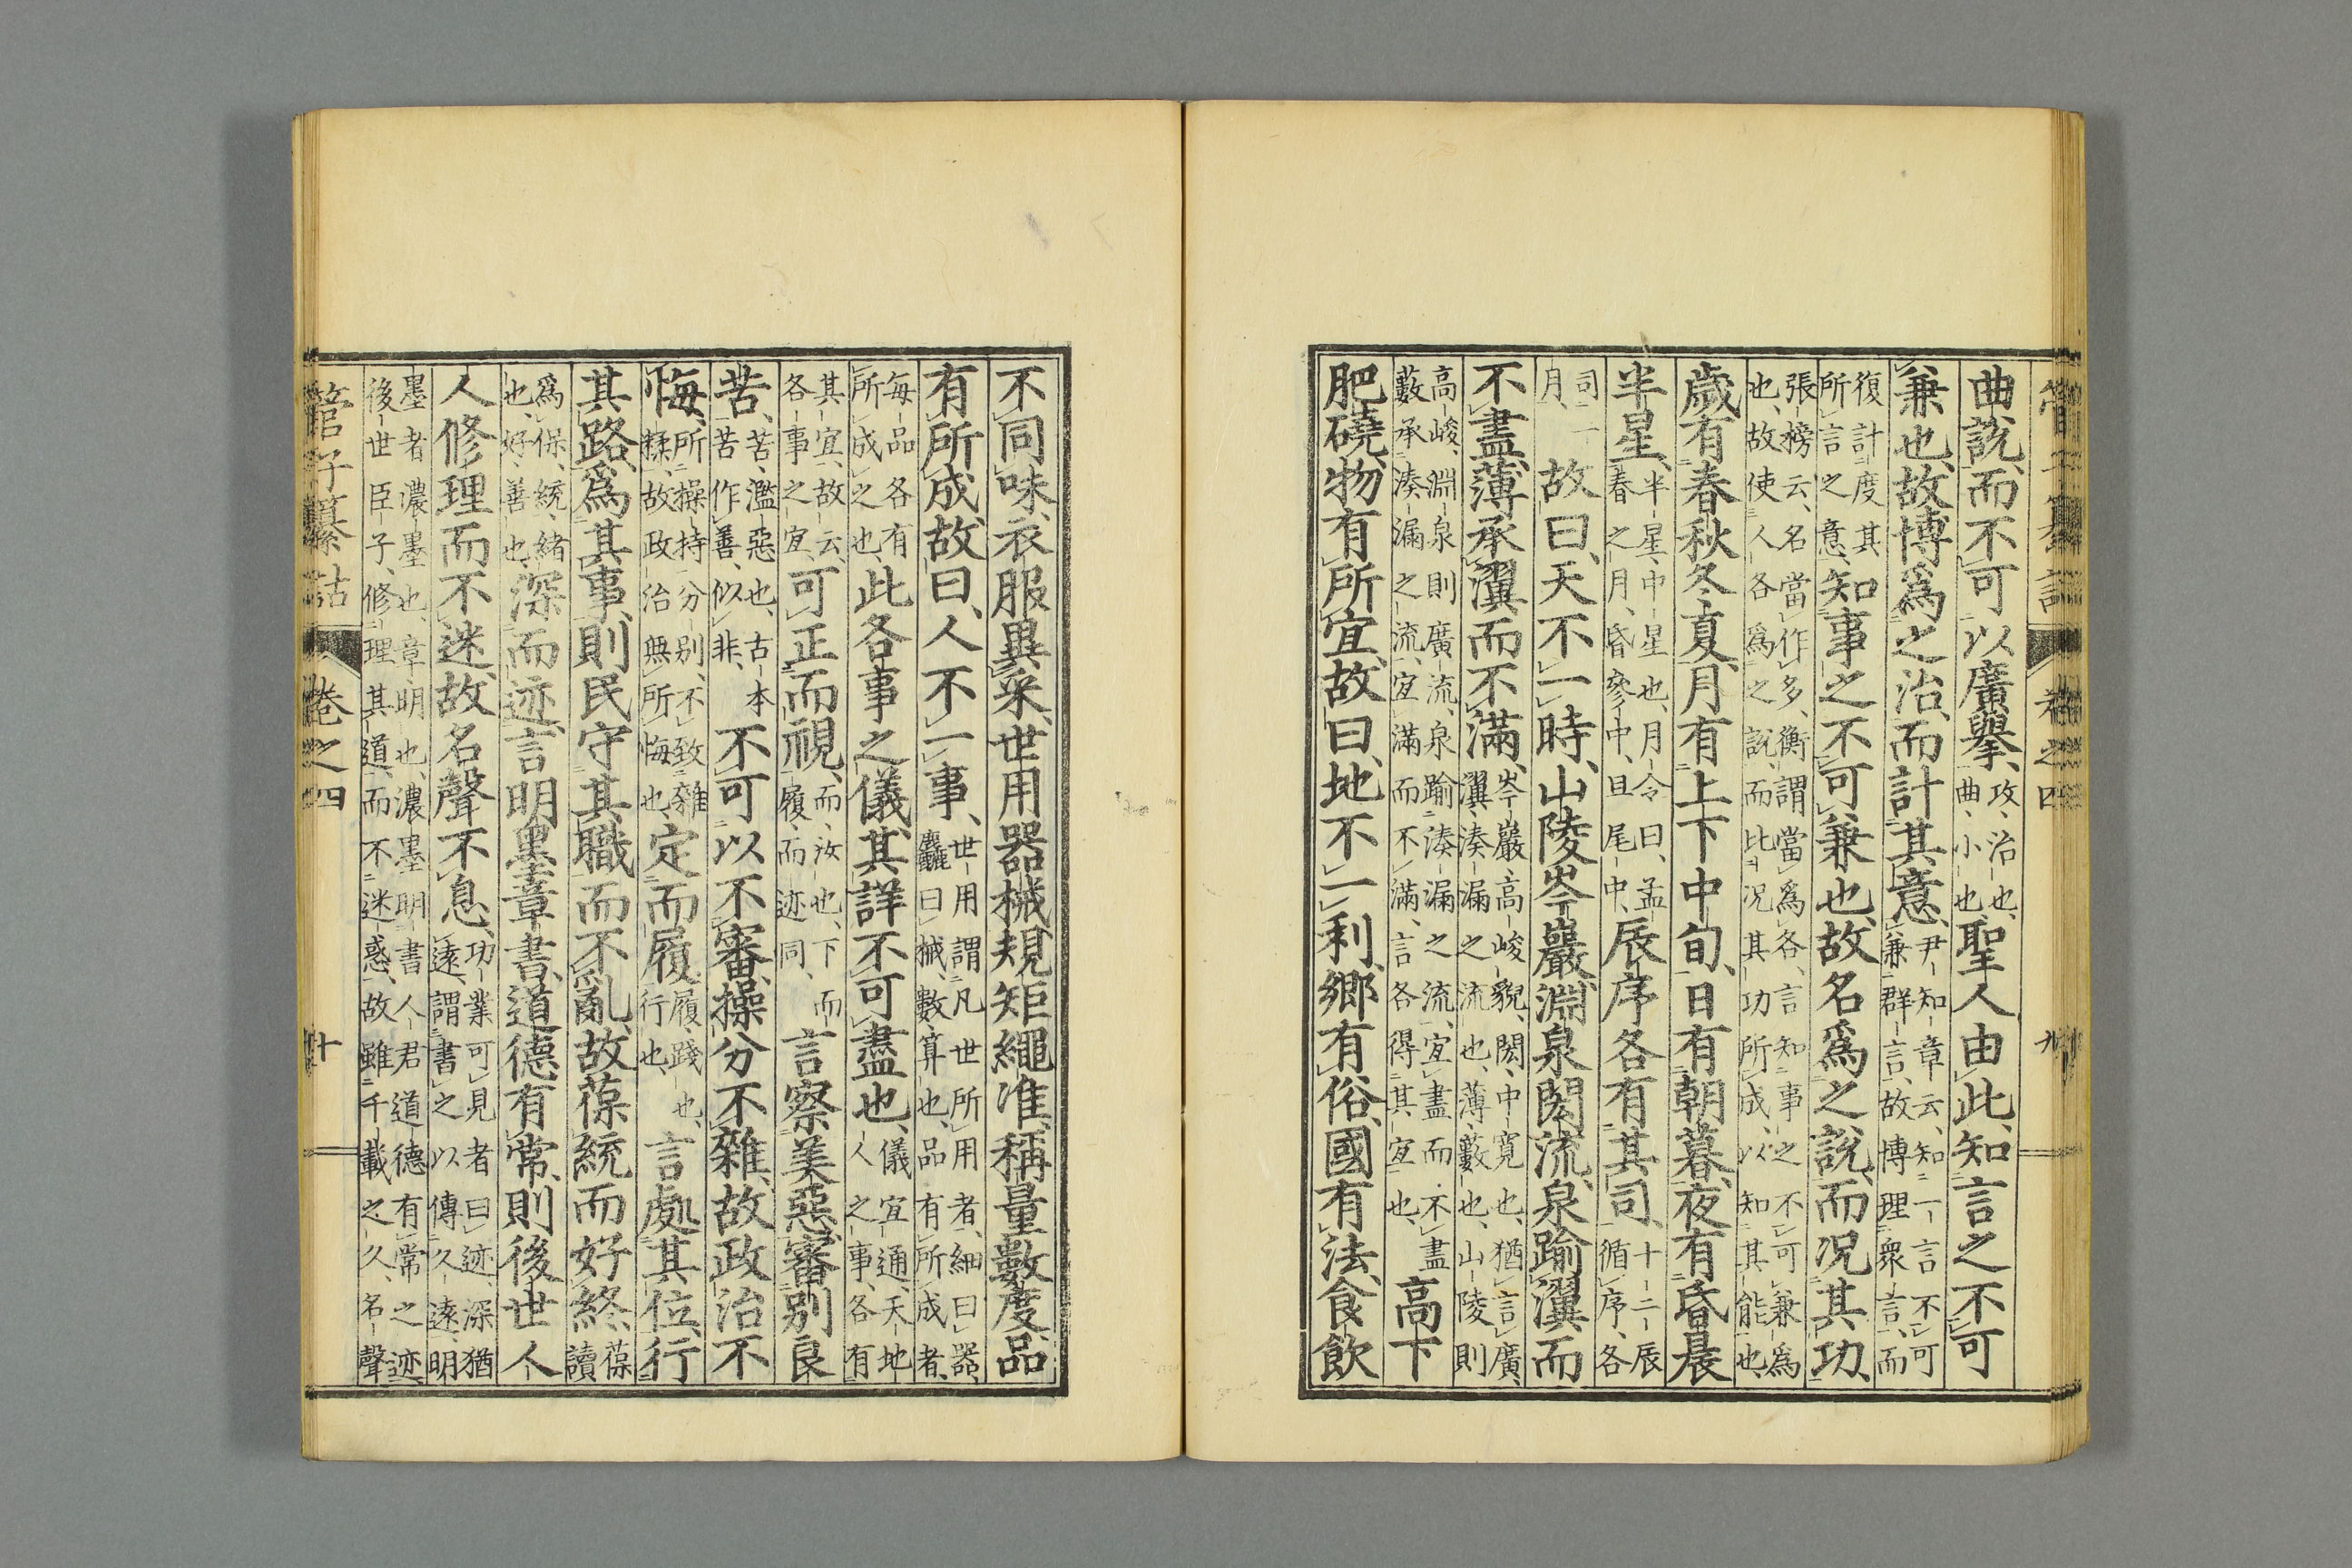 管子纂詁 卷之四 九
曲說而不可以廣舉、攻、治也、曲、小也、聖人由此、知言之不可
兼也、故博爲之治、而計其意、尹知章云、知一言不可兼群言、故博理衆言、而
復計度其所言之意、知事之不可兼也、故名爲之說、而况其功、
張榜云、名當作多、衡謂當爲各、言知事之不可兼爲也、故使人各爲之說、而比況其功所成、以知其能也、
歲有春秋冬夏、月有上下中旬、日有朝暮、夜有昏晨
半星、半星、中星也、月令曰、孟春之月、昏參中、旦尾中、辰序各有其司、十二辰循序、各
司一月、故曰、天不一時、山陵岑巖、淵泉閎流、泉踰瀷而
不盡、薄承瀷而不滿、岑巖、高峻貌、閎、中寬也、猶言廣、瀷、湊漏之流也、薄、藪也、山陵則
高峻、淵泉則廣流、泉踰湊漏之流、宜盡而不盡、藪承湊漏之流、宜滿而不滿、言各得其宜也、高下
肥磽、物有所宜、故曰、地不一利、鄉有俗、國有法、食飲
不同味、衣服異采、世用器械、規矩繩准、稱量數度、品
有所成、故曰、人不一事、世用謂凡世所用者、細曰器、麤曰械、數、算也、品有所成者、
每品各有所成之也、此各事之儀、其詳不可盡也、儀宜通、天地人之事、各有
其宜、故云各事之宜、可正而視、而、汝也、下而履、而迹同、言察美惡、審別良
苦、苦、濫惡也、古本苦作善、似非、不可以不審、操分不雜、故政治不
悔、所操持分別、不致雜糅、故政治無所悔也、定而履、履、踐也、行也、言處其位、行
其路、爲其事、則民守其職而不亂、故葆統而好終、葆讀
爲保、統、緒也、好、善也、深而迹、言明墨章書、道德有常、則後世人
人修理而不迷、故名聲不息、功業可見者曰迹、深猶遠、謂書之以傳久遠、明
墨者濃墨也、章、明也、濃墨明書人君道德有常之迹、後世臣子、修理其道、而不迷惑、故雖千載之久、名聲
管子纂詁 卷之四 十